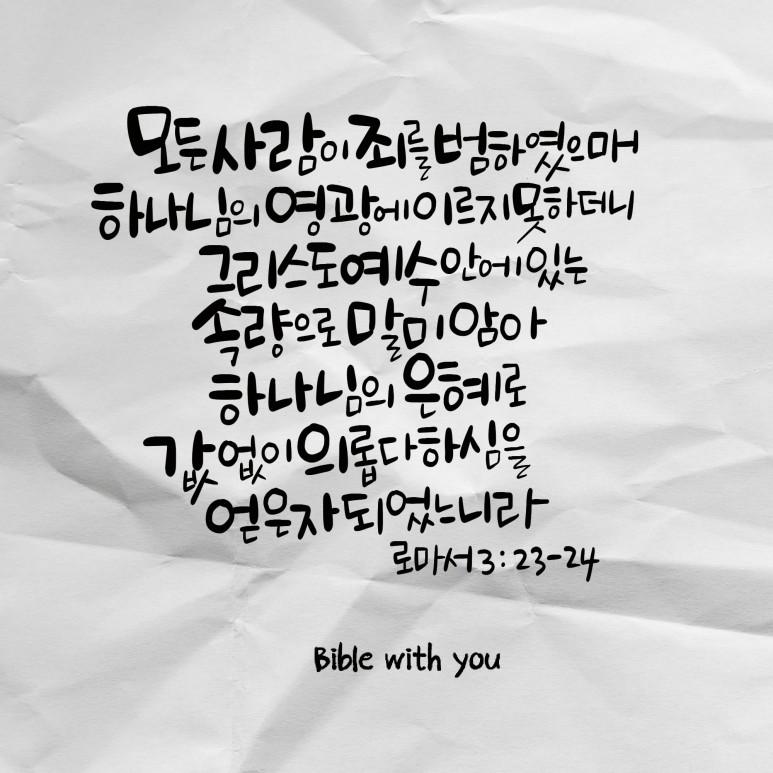 모든 사람이 죄를 범하였으매
하나님의 영광에 이르지 못하더니
그리스도 예수 안에 있는
속량으로 말미암아
하나님의 은혜로
값 없이 의롭다 하심을
얻은 자 되었느니라
로마서 3:23-24
Bible with you